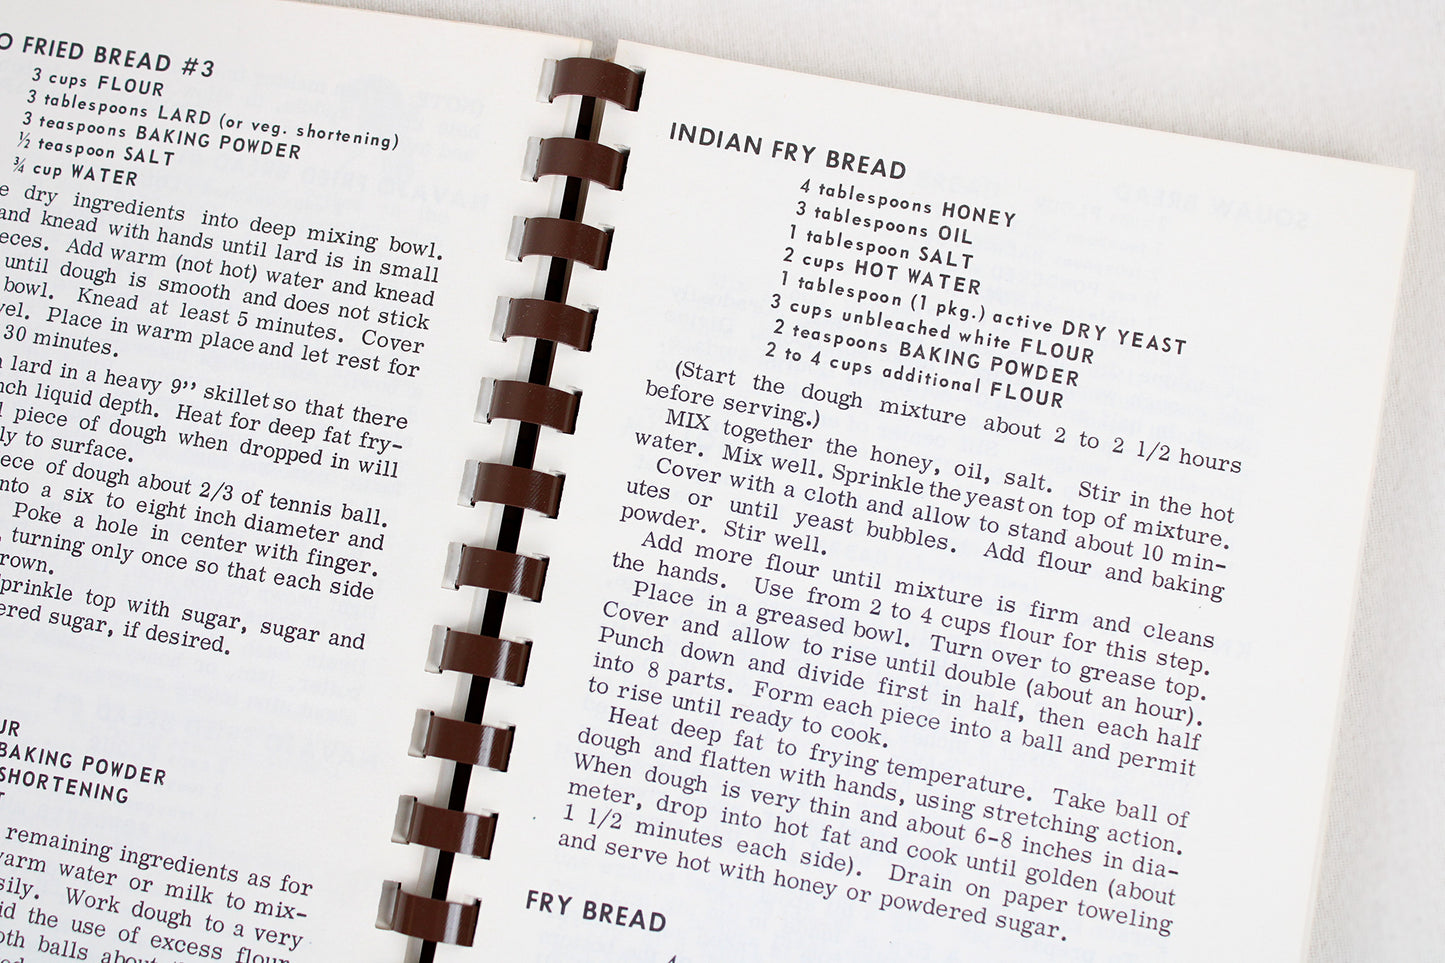 O FRIED BREAD #3
3 cups FLOUR
3 tablespoons LARD (or veg. shortening)
3 teaspoons BAKING POWDER
½ teaspoon SALT
¾ cup WATER
e dry ingredients into deep mixing bowl.
and knead with hands until lard is in small
eces. Add warm (not hot) water and knead
until dough is smooth and does not stick
bowl. Knead at least 5 minutes. Cover
vel. Place in warm place and let rest for
30 minutes.
lard in a heavy 9" skillet so that there
nch liquid depth. Heat for deep fat fry-
piece of dough when dropped in will
ly to surface.
ece of dough about 2/3 of tennis ball.
nto a six to eight inch diameter and
Poke a hole in center with finger.
, turning only once so that each side
rown.
prinkle top with sugar, sugar and
ered sugar, if desired.
UR
BAKING POWDER
SHORTENING
remaining ingredients as for
warm water or milk to mix-
sily. Work dough to a very
id the use of excess flour
oth balls about
INDIAN FRY BREAD
4 tablespoons HONEY
3 tablespoons OIL
1 tablespoon SALT
2 cups HOT WATER
1 tablespoon (1 pkg.) active DRY YEAST
3 cups unbleached white FLOUR
2 teaspoons BAKING POWDER
2 to 4 cups additional FLOUR
(Start the dough mixture about 2 to 2 1/2 hours
before serving.)
MIX together the honey, oil, salt. Stir in the hot
water. Mix well. Sprinkle the yeast on top of mixture.
Cover with a cloth and allow to stand about 10 min-
utes or until yeast bubbles. Add flour and baking
powder. Stir well.
Add more flour until mixture is firm and cleans
the hands. Use from 2 to 4 cups flour for this step.
Place in a greased bowl. Turn over to grease top.
Cover and allow to rise until double (about an hour).
Punch down and divide first in half, then each half
into 8 parts. Form each piece into a ball and permit
to rise until ready to cook.
Heat deep fat to frying temperature. Take ball of
dough and flatten with hands, using stretching action.
When dough is very thin and about 6-8 inches in dia-
meter, drop into hot fat and cook until golden (about
1 1/2 minutes each side). Drain on paper toweling
and serve hot with honey or powdered sugar.
FRY BREAD